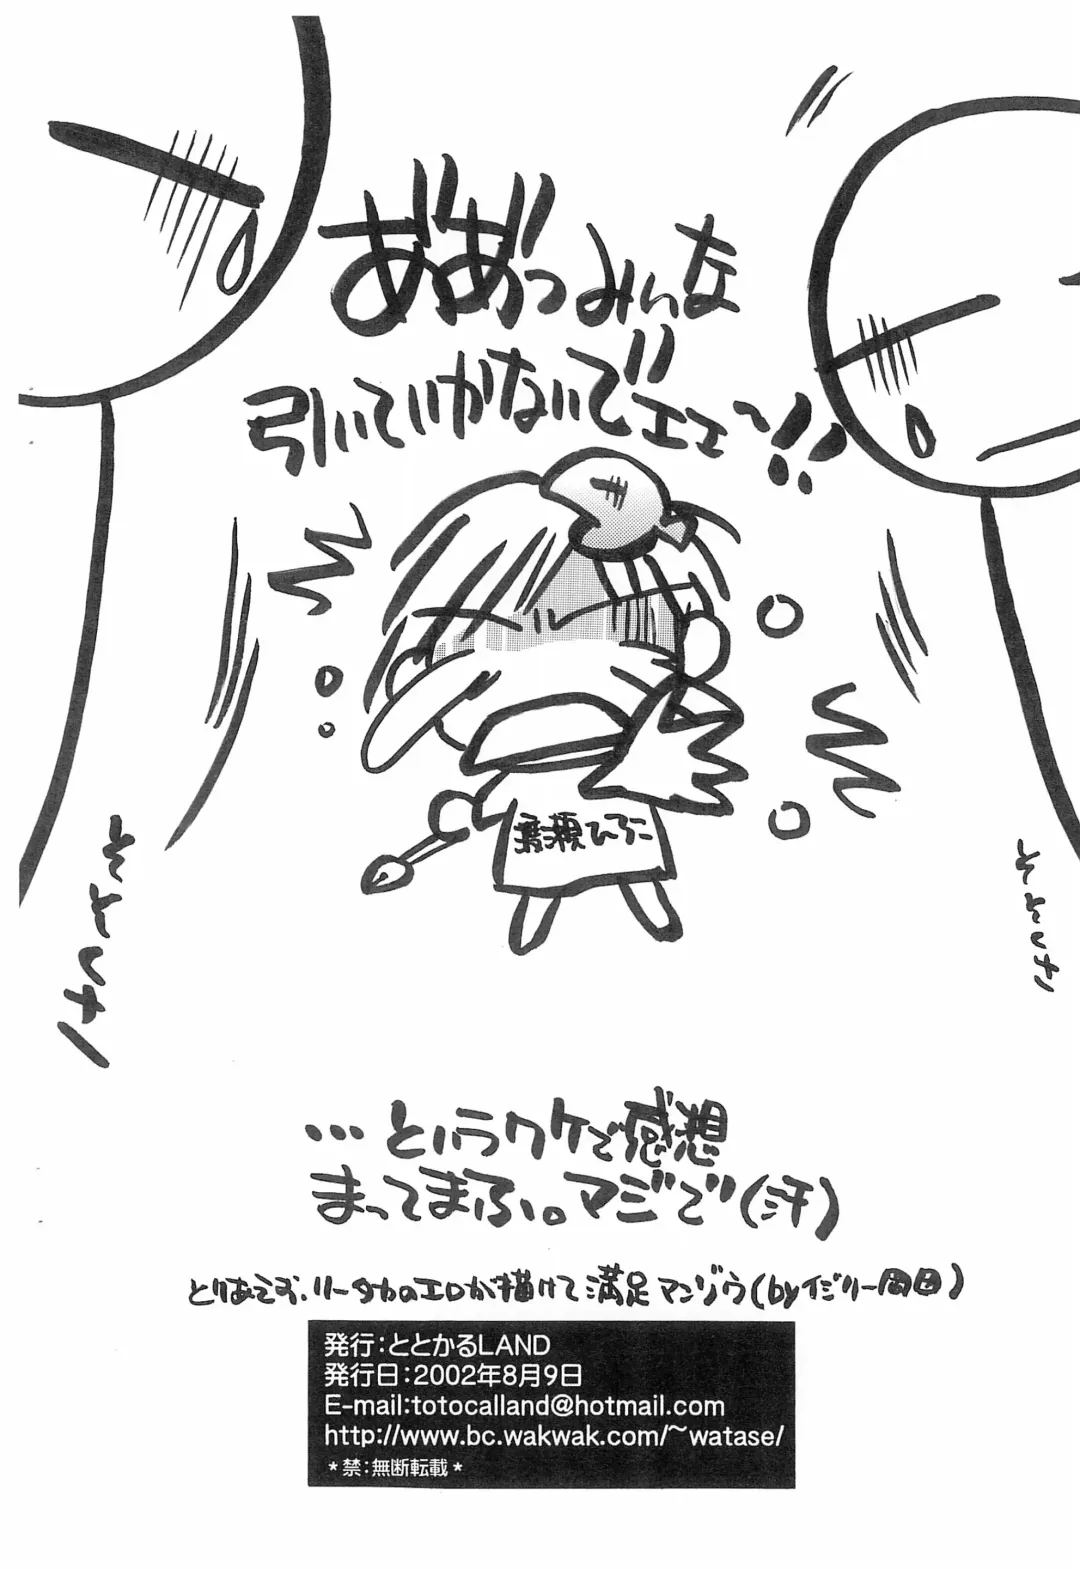 ああっみんな
引いていかないでェェ〜!!
渡瀬ひろこ
…というワケで感想
まってまふ。マジで(汗)
とりあえず、リータカのエロが描けて満足マンゾウ(byイジリー岡田)
発行:ととかるLAND
発行日:2002年8月9日
E-mail:totocalland@hotmail.com
http://www.bc.wakwak.com/~watase/
*禁:無断転載*